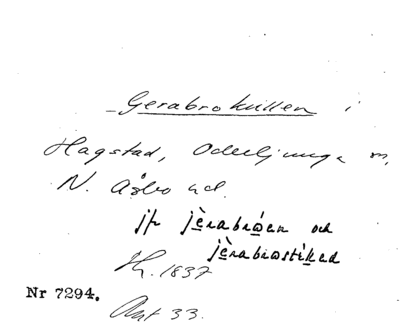 Gerabrokullen i
Hagstad, Oderljunga sn,
N. Åsbo hd.
jfr jèrabrøen och
jèrabrøstìked
Hr. 1837
Nr 7294.
Ant 33.